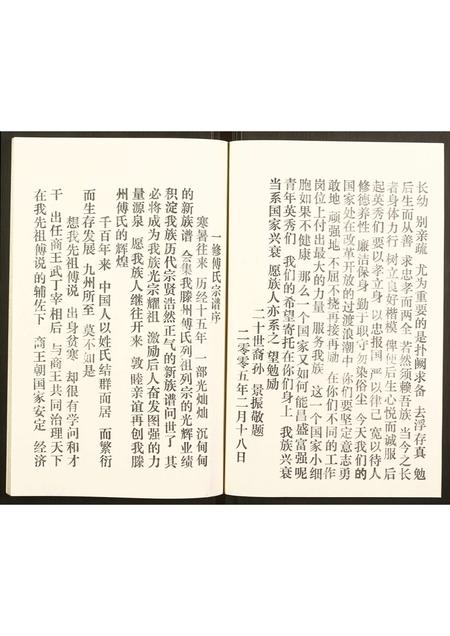 长幼 别亲疏 尤为重要的是扑阙求备 去浮存真 勉
后生而从善 求忠孝而两全 若然须赣吾族 当今之长
者身体力行 树立良好楷模 俾使后生心悦而诚服 后
起英秀们 要以孝立身 以忠报国 严以律己 宽以待人
修德养性 廉洁保身 勤于职守 勿染俗尘 今天我们的
国家处在改革开放的过渡浪潮中 你们要坚定意志勇
敢地 顽强地 不屈不挠再接再励 在你们不同的工作
岗位上付出最大的力量 服务我族 这一个国家小细
胞如果不健康 那么一个国家又如何能昌盛富强呢
青年英秀们 我们的希望寄托在你们身上 我族兴衰
当系国家兴衰 愿族人亦系之 望勉励
二十世裔孙 景振敬题
二零零五年二月十八日
一修傅氏宗谱序
寒暑往来 历经十五年 一部光灿灿 沉甸甸
的新族谱 会集我滕州傅氏列祖列宗的光辉业绩
积淀我族历代宗贤浩然正气的新族谱问世了 其
必将成为我族光宗耀祖 激励后人奋发图强的力
量源泉 愿我族人继往开来 敦睦亲谊再创我滕
州傅氏的辉煌
千百年来 中国人以姓氏结群而居 而繁衍
而生存发展 九州所至 莫不如是
想我先祖傅说 出身贫寒 却很有学问和才
干 出任商王武丁宰相后 与商王共同治理天下
在我先祖傅说的辅佐下 商王朝国家安定 经济